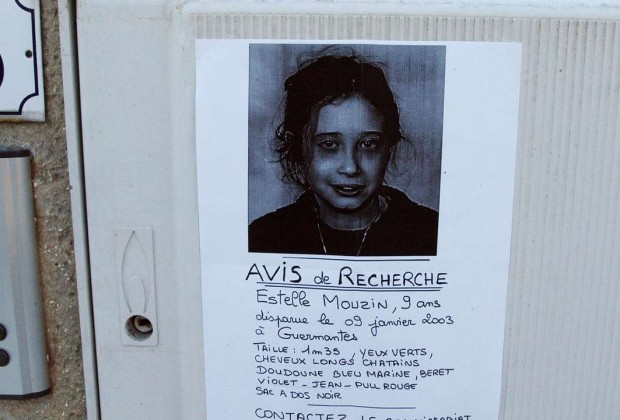 AVIS de RECHERCHE
Estelle MOUZIN, 9 ans
disparue le 09 janvier 2003
à Guermantes
TAILLE : 1m35, YEUX VERTS,
CHEVEUX LONGS CHATAINS
DOUDOUNE BLEU MARINE, BERET
VIOLET - JEAN - PULL ROUGE
SAC A DOS NOIR
CONTACTEZ LE COMMISSARIAT